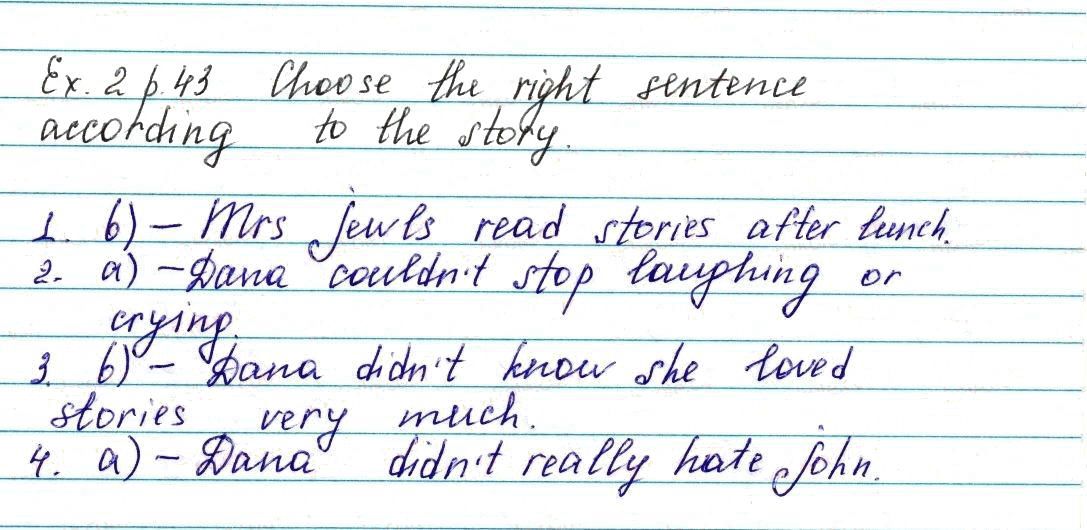 Ex. 2 p. 43 Choose the right sentence
according to the story.
1. b) – Mrs Jewls read stories after lunch.
2. a) – Dana couldn't stop laughing or
crying.
3. b) – Dana didn't know she loved
stories very much.
4. a) – Dana didn't really hate John.